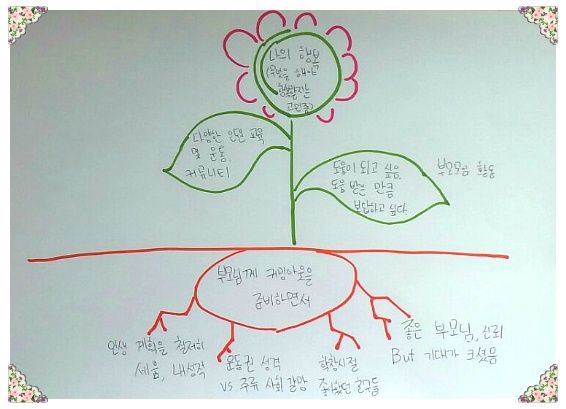 나의 행복
(무엇을 해야
행복할지는
고민중)
다양한 인권 교육
및 운동
커뮤니티
도움이 되고 싶음.
도움 받은 만큼
보답하고 싶다.
부모모임 활동
부모님께 커밍아웃을
준비하면서
인생 계획을 철저히
세움, 내성적
운동권 성격
vs 주류 사회 갈망
학창시절
좋아했던 친구들
좋은 부모님, 신뢰
But 기대가 크셨음